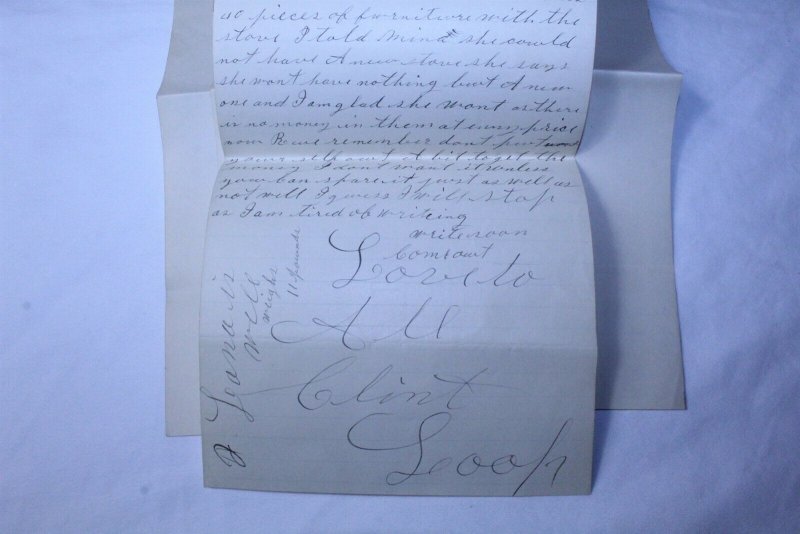 40 pieces of furniture with the
stove I told Mind she could
not have A new stove she says
she wont have nothing but A new
one and I am glad she wont as there
is no money in them at enny price
now R we remember dont put
your self out A bit to get the
money I dont want it unless
you can spare it just as well as
not well I guess I will stop
as I am tired of writing
write soon
Com out
Love to
All
Clint
Loop
Leona is
well
weighs
11 pounds